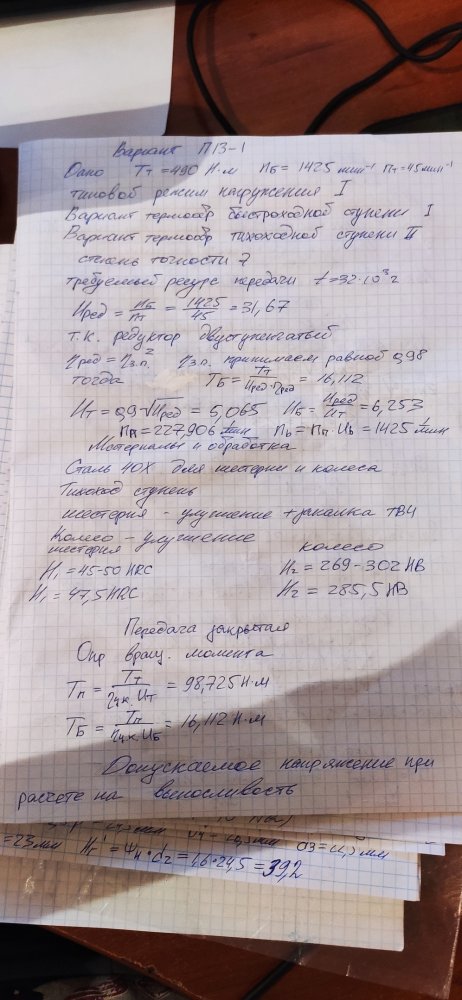 Вариант П13-1
Дано Tт = 490 Н·м nБ = 1425 мин⁻¹ nт = 45 мин⁻¹
типовой режим нагружения I
Вариант термообр быстроходной ступени I
Вариант термообр тихоходной ступени II
степень точности 7
требуемый ресурс передачи t = 32·10³ г
Uред = nБ/nт = 1425/45 = 31,67
т.к. редуктор двуступенчатый
ηред = ηз.п.² ηз.п. принимаем равной 0,98
тогда TБ = Tт/(Uред·ηред) = 16,112
Uт = 0,9√Uред = 5,065 UБ = Uред/Uт = 6,253
nп = 227,906 1/мин nь = nп·Uь = 1425 1/мин
Материалы и обработка
Сталь 40Х для шестерни и колеса
Тихоход ступень
шестерня - улучшение + закалка ТВЧ
Колесо - улучшение
шестерня колесо
H₁ = 45-50 HRC H₂ = 269-302 HB
H₁ = 47,5 HRC H₂ = 285,5 HB
Передача закрытая
Опр вращ. момента
Tп = Tт/(ηч.к.·Uт) = 98,725 Н·м
TБ = Tп/(ηч.к.·UБ) = 16,112 Н·м
Допускаемое напряжение при
расчете на выносливость
= 23 мм = 1,6·24,5 = 39,2